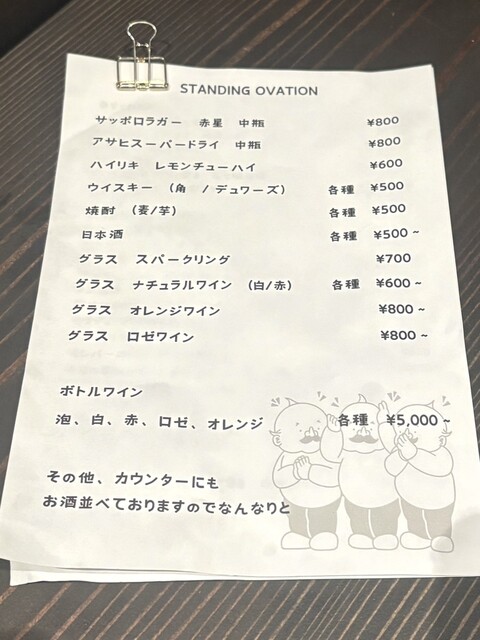 STANDING OVATION
サッポロラガー 赤星 中瓶 ¥800
アサヒスーパードライ 中瓶 ¥800
ハイリキ レモンチューハイ ¥600
ウイスキー (角 / デュワーズ) 各種 ¥500
焼酎 (麦/芋) 各種 ¥500
日本酒 各種 ¥500~
グラス スパークリング ¥700
グラス ナチュラルワイン (白/赤) 各種 ¥600~
グラス オレンジワイン ¥800~
グラス ロゼワイン ¥800~
ボトルワイン
泡、白、赤、ロゼ、オレンジ 各種 ¥5,000~
その他、カウンターにも
お酒並べておりますのでなんなりと